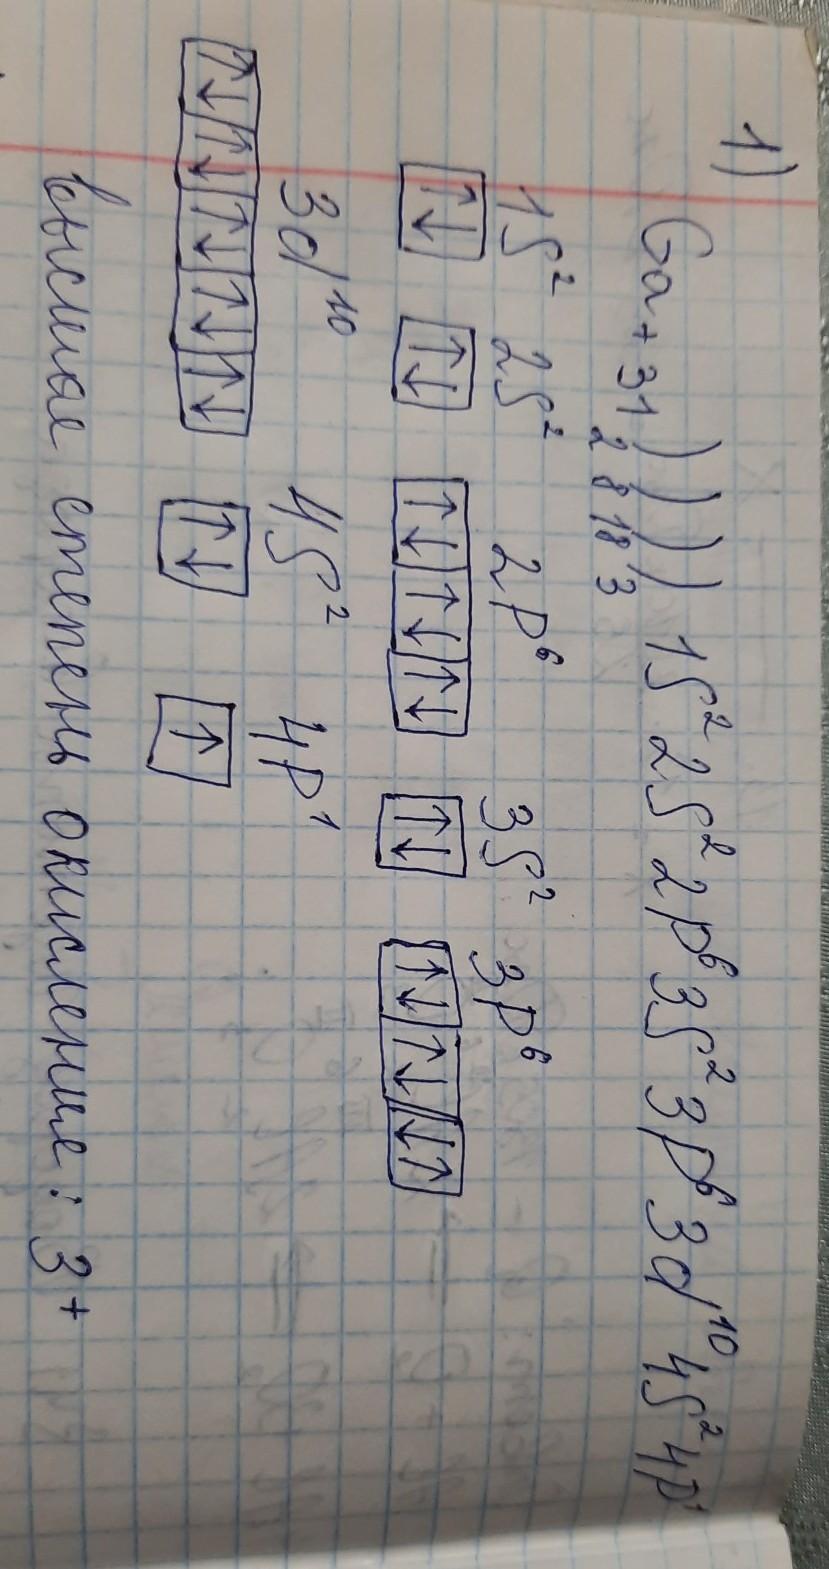 1) Ga +31 ) ) ) ) 1S² 2S² 2p⁶ 3S² 3p⁶ 3d¹⁰ 4S² 4p¹
2 8 18 3
1S² 2S² 2p⁶ 3S² 3p⁶
↑↓ ↑↓ ↑↓ ↑↓ ↑↓ ↑↓ ↑↓ ↑↓ ↓↑
3d¹⁰ 4S² 4p¹
↑↓ ↑↓ ↑↓ ↑↓ ↑↓ ↑↓ ↑
высшая степень окисление: 3+